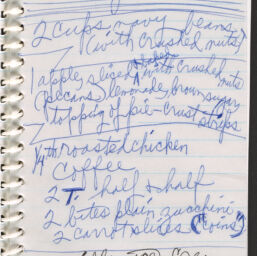 2 cups navy beans
(with crushed nuts)
1 apple, sliced, with crushed nuts
(pecans) lemonade, brown sugar
topping of pie-crust strips
1/4 roasted chicken
Coffee
2 T. half & half
2 bites plain zucchini
2 carrot slices ("coins")